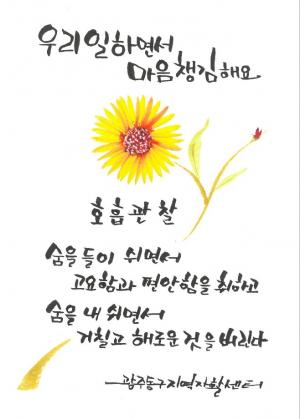 우리 일하면서
마음챙김해요
호흡관찰
숨을 들이 쉬면서
고요함과 편안함을 취하고
숨을 내 쉬면서
거칠고 해로운 것을 버린다
광주동구지역자활센터